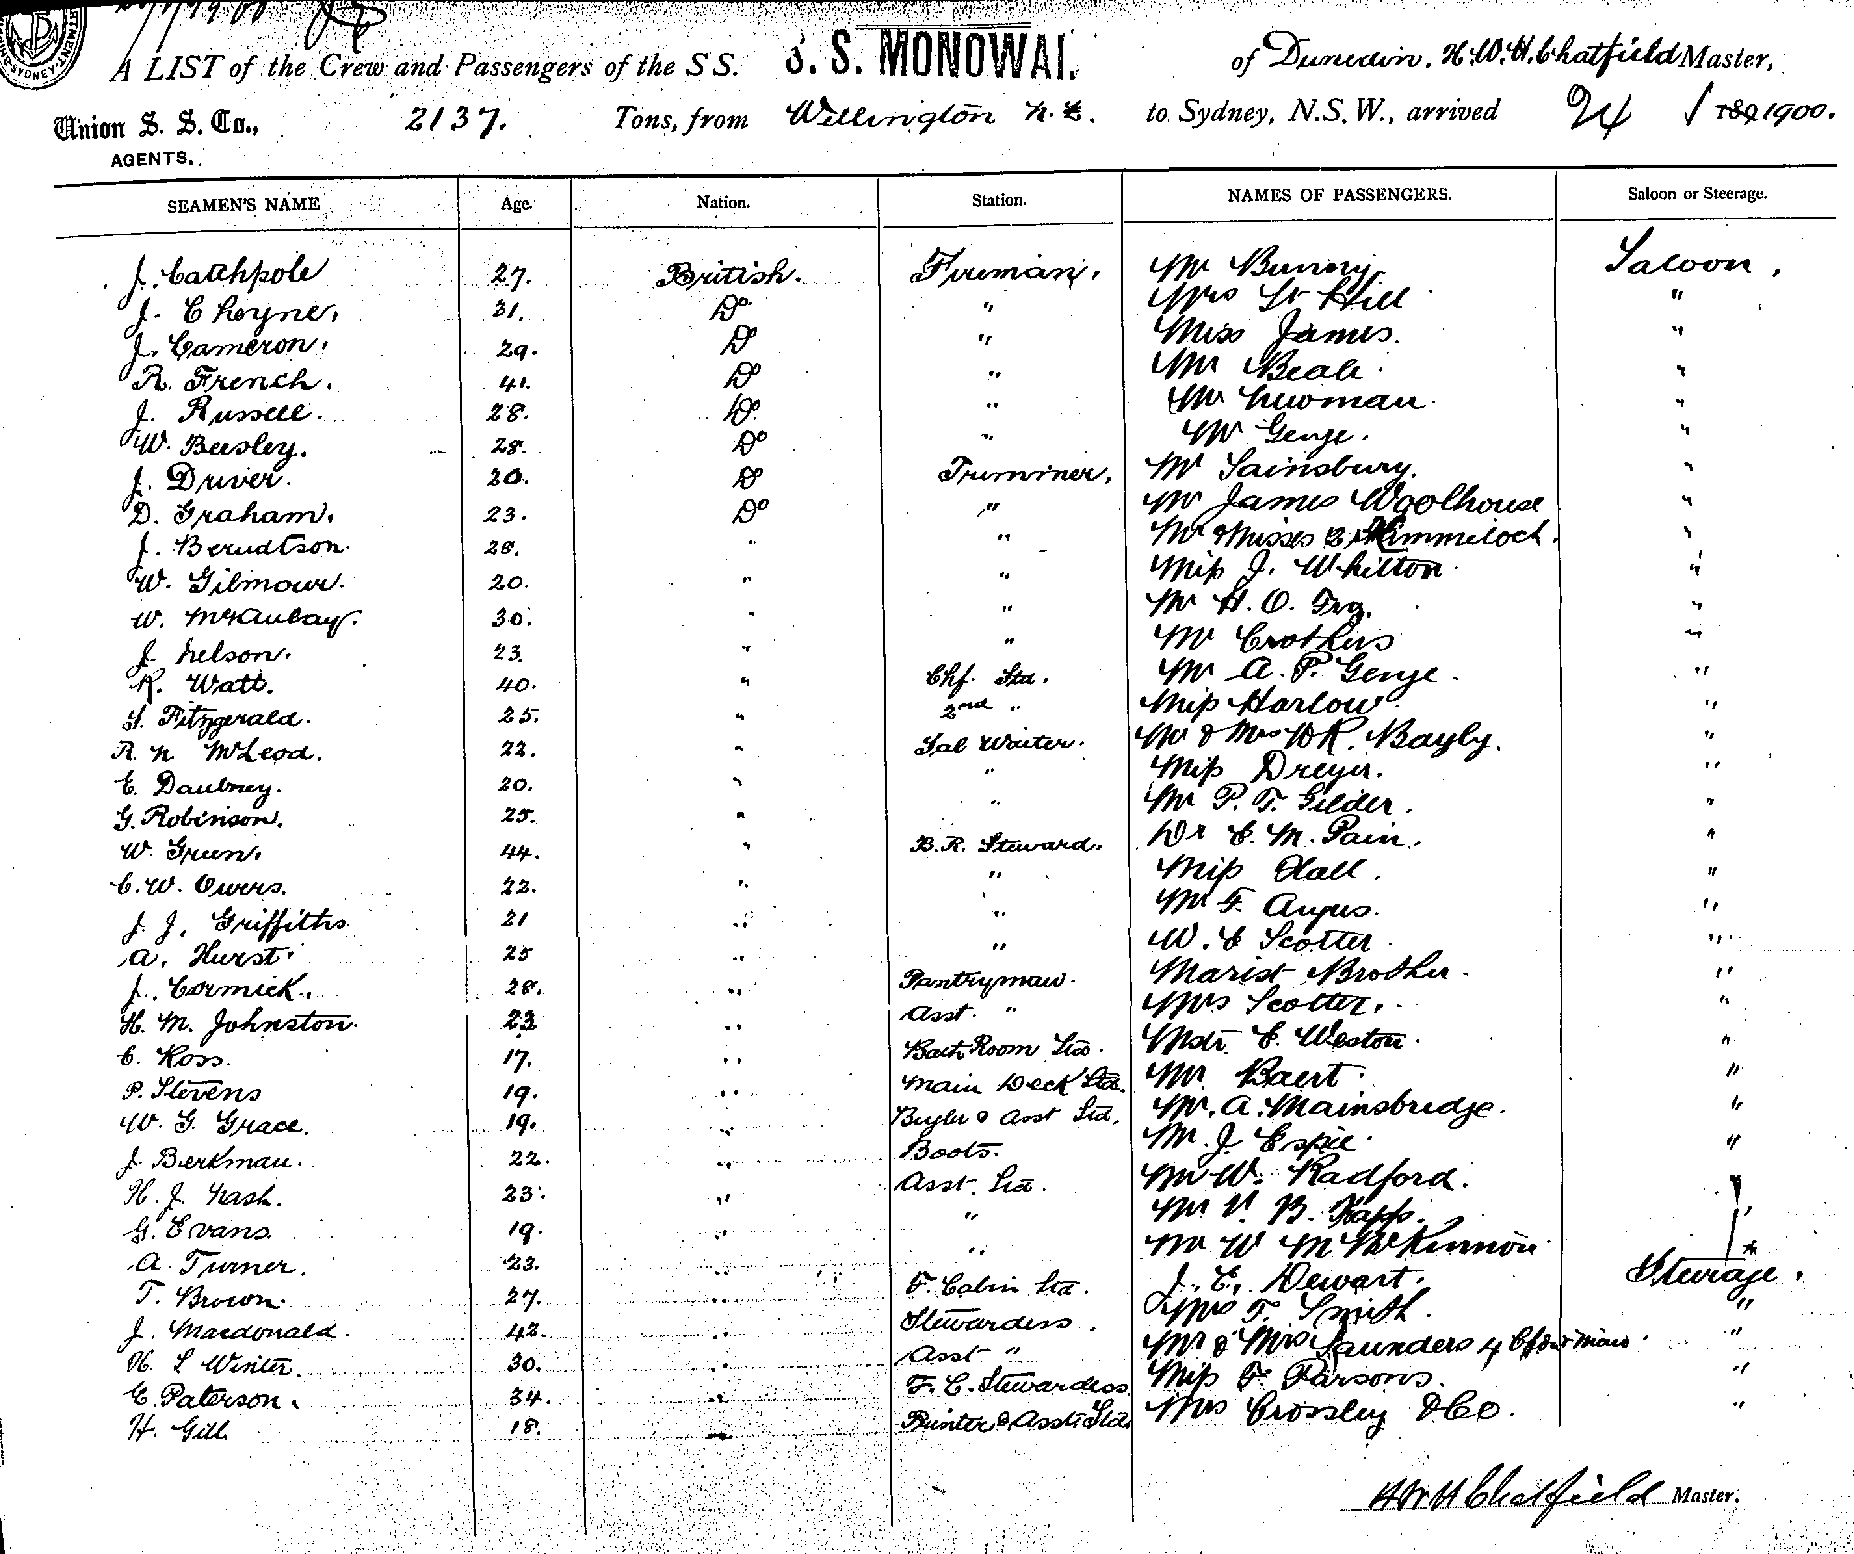 A LIST of the Crew and Passengers of the S S. S. S. MONOWAI. of Dunedin, H. W. H. Chatfield Master,
Union S. S. Co., 2137. Tons, from Wellington N. Z. to Sydney, N.S.W., arrived 24 / 1 1900.
AGENTS.
SEAMEN'S NAME Age. Nation. Station. NAMES OF PASSENGERS. Saloon or Steerage.
J. Catchpole 27. British. Fireman. Mr Bunny Saloon.
J. Cheyne. 31. Do " Mrs St Hill "
J. Cameron. 29. Do " Miss James. "
R. French. 41. Do " Mr Beale "
J. Russell. 28. Do " Mr Newman. "
W. Beesley. 28. Do " Mr Genge. "
J. Driver. 20. Do Trimmer. Mr Sainsbury. "
D. Graham. 23. Do " Mr James Woolhouse "
J. Berndtson. 28. " " Mr & Misses 2 "
W. Gilmour. 20. " " Miss J. Whitton "
W. 30. " " Mr H. O. "
J. Nelson. 23. " " Mr Crothers "
R. Watt. 40. " Chf. Std. Mr A. P. Genge. "
Fitzgerald. 25. " 2nd " Miss Harlow "
R. N McLeod. 22. " Sal Waiter. Mr & Mrs R. Bayly. "
E. Daubney. 20. " " Miss Dreyer. "
G. Robinson. 25. " " Mr P. T. Gilder. "
W. Green. 44. " B.R. Steward. Dr E. M. Pain. "
C. W. Owers. 22. " " Miss Hall. "
J. J. Griffiths 21 " " Mr F. Angus. "
A. Hurst. 25 " " W. E Scotter "
J. Cormick. 28. " Pantryman. Marist Brother. "
H. M. Johnston. 23 " Asst. " Mrs Scotter. "
C. Ross. 17. " Bath Room Std. Mstr. E. Weston. "
P. Stevens 19. " Main Deck Std. Mr Baert. "
W. G. Grace. 19. " Bugler & Asst Std. Mr. A. Mainsbridge. "
J. Berkman. 22. " Boots. Mr. J. Espie. "
H. J. Nash. 23. " Asst. Std. Mr W. Radford. "
G. Evans 19. " " Mr V. B. "
A. Turner. 23. " " Mr W McKinnon "
T. Brown. 27. " F. Cabin Std. J. E. Dewart. Steerage.
J. Macdonald. 42. " Stewardess. Mrs F. Smith. "
H. L Winter. 30. " Asst " Mr & Mrs Saunders 4 "
E. Paterson. 34. " F. C. Stewardess Miss F. Parsons. "
H. Gill 18. " Printer & Asst Std. Mrs Crossley & Co. "
H W H Chatfield Master.